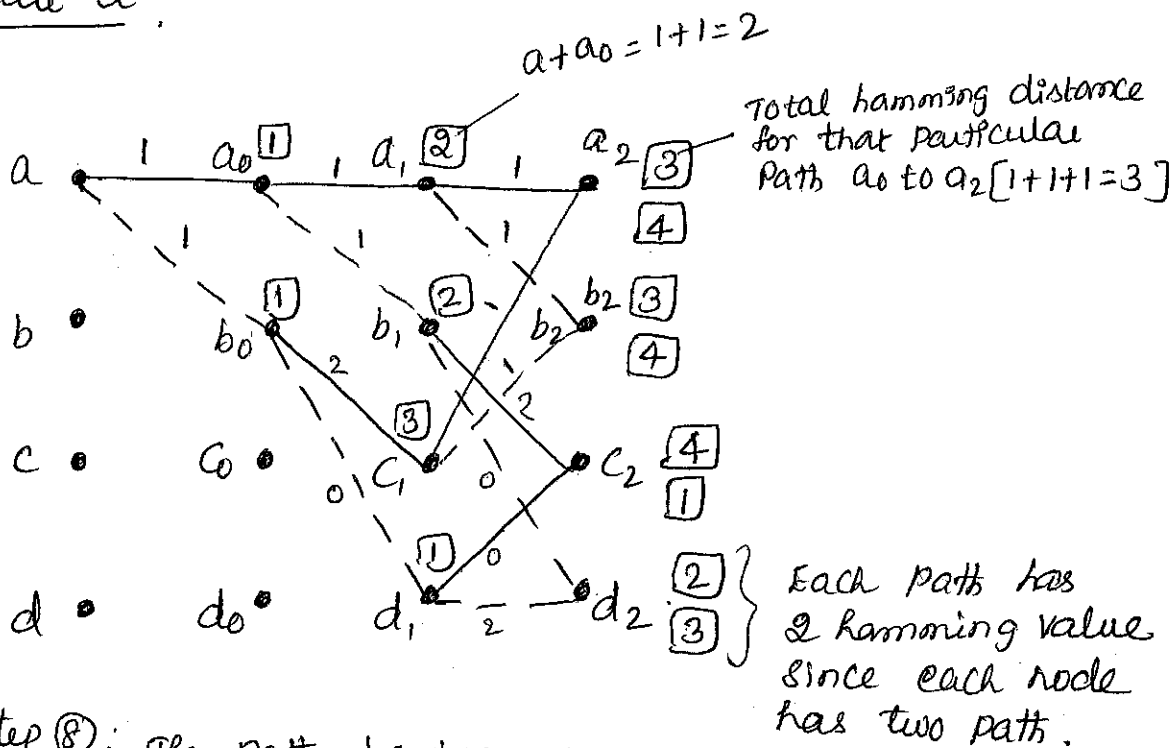 a + a0 = 1+1 = 2
Total hamming distance
for that particular
Path a0 to a2 [1+1+1=3]
a 1 a0 [1] 1 a1 [2] 1 a2 [3]
[4]
1 1 1
b b0 [1] b1 [2] b2 b2 [3]
[4]
2 2
c c0 c1 [3] 0 c2 [4]
[1]
0 0
d d0 d1 [1] 2 d2 [2]
[3]
Each path has
2 hamming value
since each node
has two path.